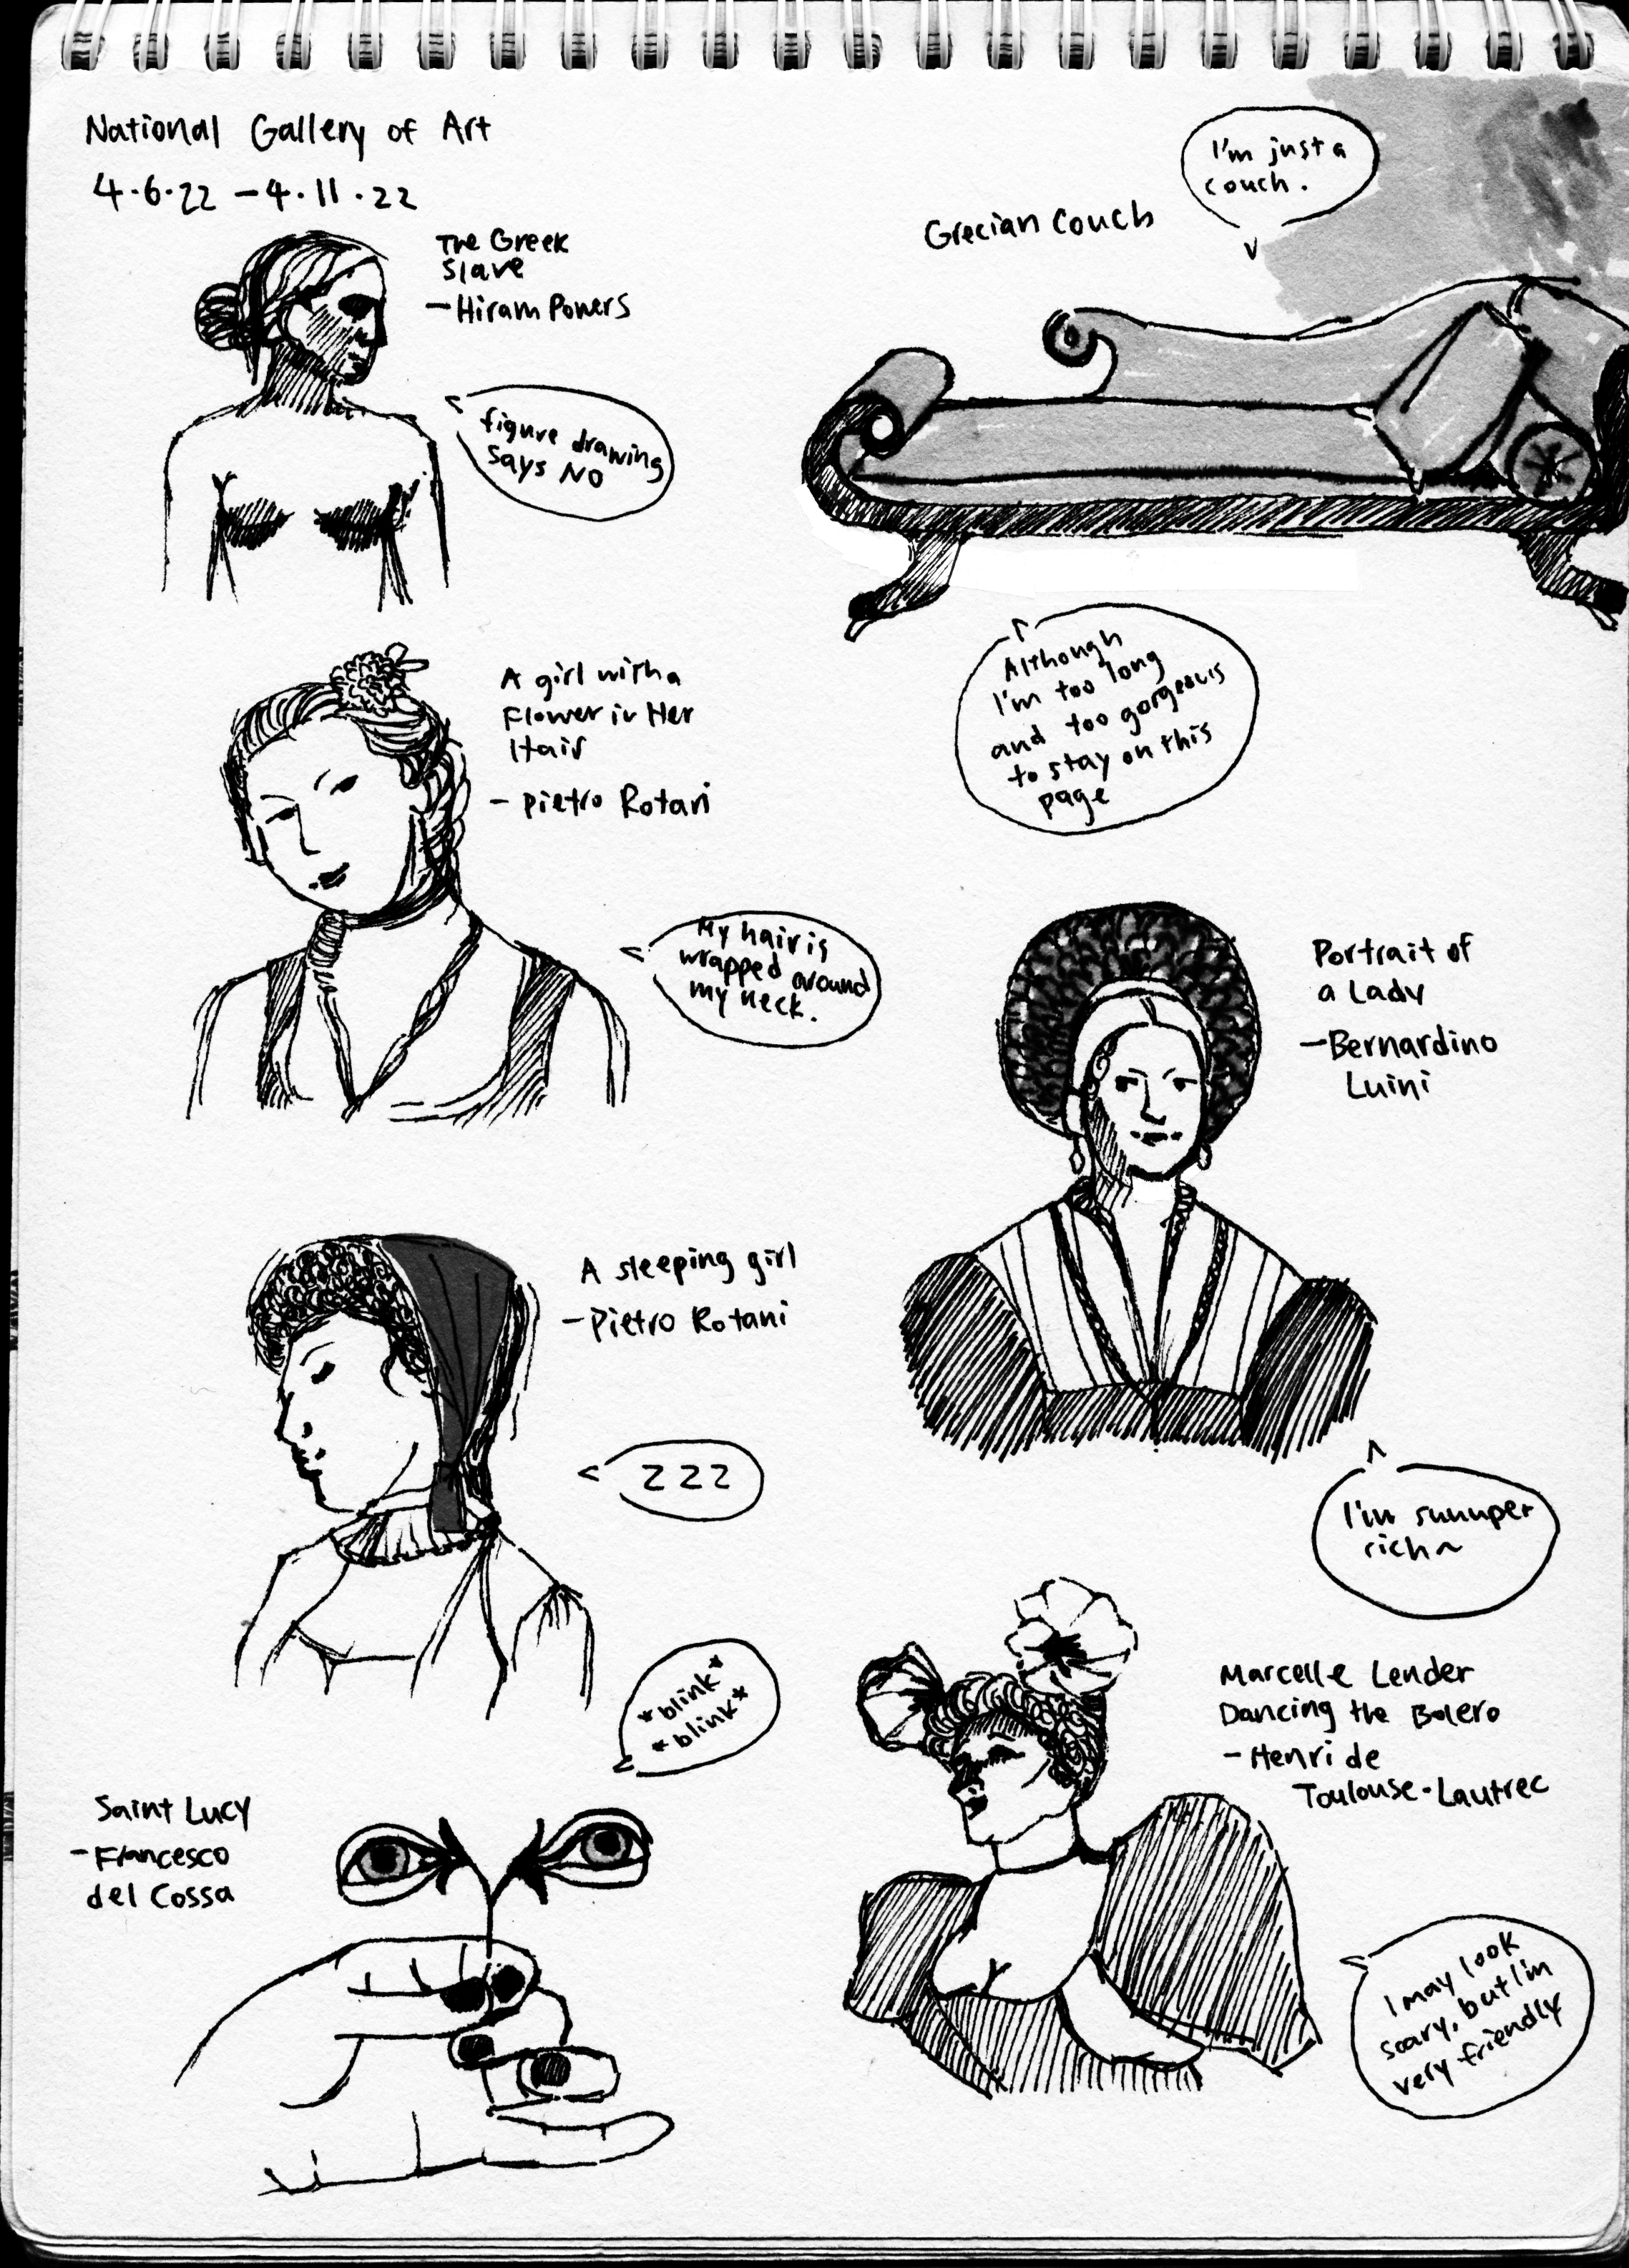 National Gallery of Art
4.6.22 - 4.11.22
The Greek
Slave
- Hiram Powers
figure drawing
says NO
Grecian Couch
I'm just a
couch.
Although
I'm too long
and too gorgeous
to stay on this
page
A girl with a
Flower in Her
Hair
- Pietro Rotari
My hair is
wrapped around
my neck.
Portrait of
a Lady
- Bernardino
Luini
I'm suuuper
rich~
A sleeping girl
- Pietro Rotani
z z z
Saint Lucy
- Francesco
del Cossa
*blink*
*blink*
Marcelle Lender
Dancing the Bolero
- Henri de
Toulouse-Lautrec
I may look
scary, but I'm
very friendly